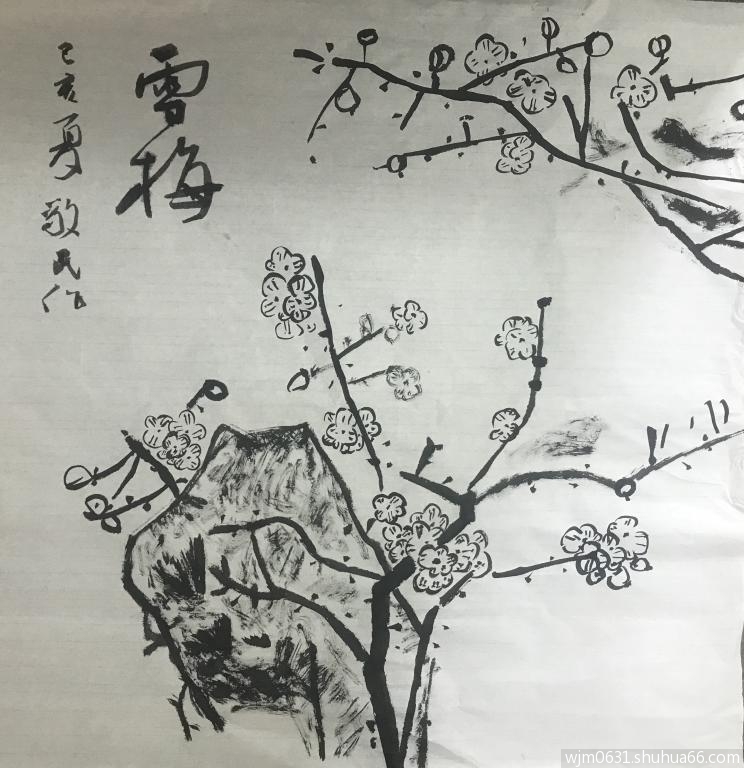 雪梅
己亥夏敬民作
wjm0631.shuhua66.com